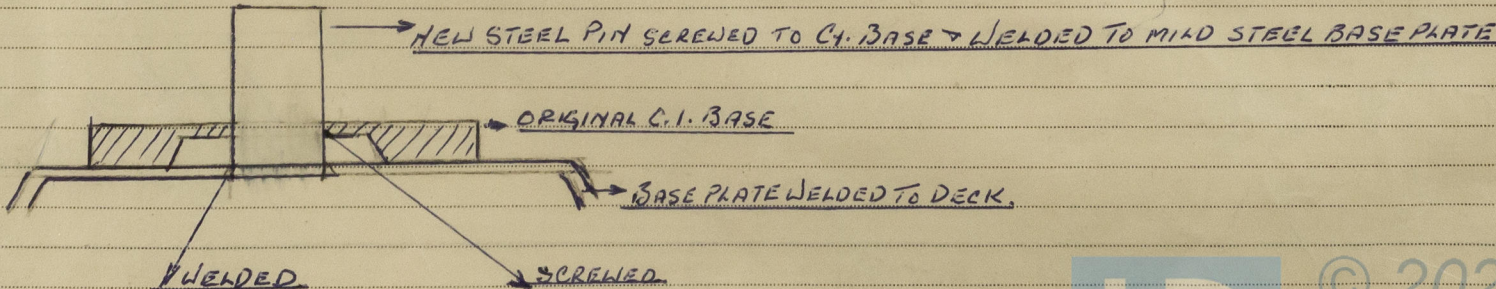 NEW STEEL PIN SCREWED TO C.I. BASE & WELDED TO MILD STEEL BASE PLATE
ORIGINAL C.I. BASE
BASE PLATE WELDED TO DECK.
WELDED
SCREWED
© 202